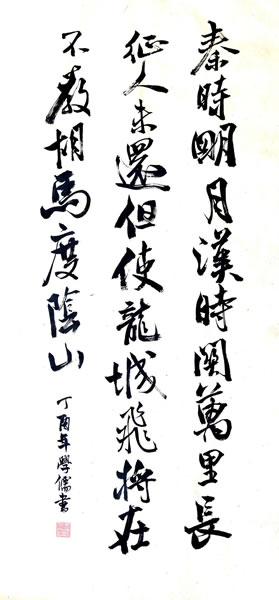 秦時明月漢時關萬里長
征人未還但使龍城飛將在
不教胡馬度陰山
丁酉年學儒書